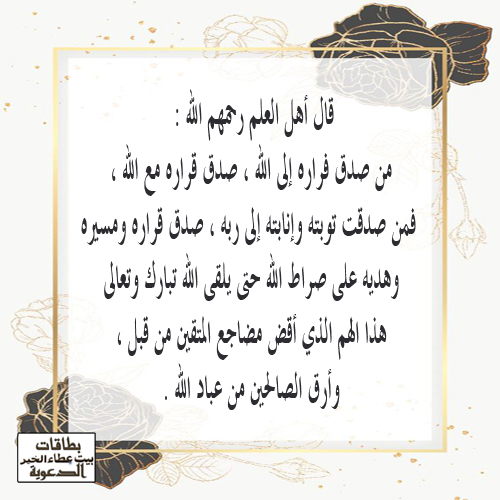 قال أهل العلم رحمهم الله :
من صدق فراره إلى الله ، صدق قراره مع الله ،
فمن صدقت توبته وإنابته إلى ربه ، صدق قراره ومسيره
وهديه على صراط الله حتى يلقى الله تبارك وتعالى
هذا الهم الذي أقض مضاجع المتقين من قبل ،
وأرق الصالحين من عباد الله .
بطاقات
بيت عطاء الخير
الدعوية